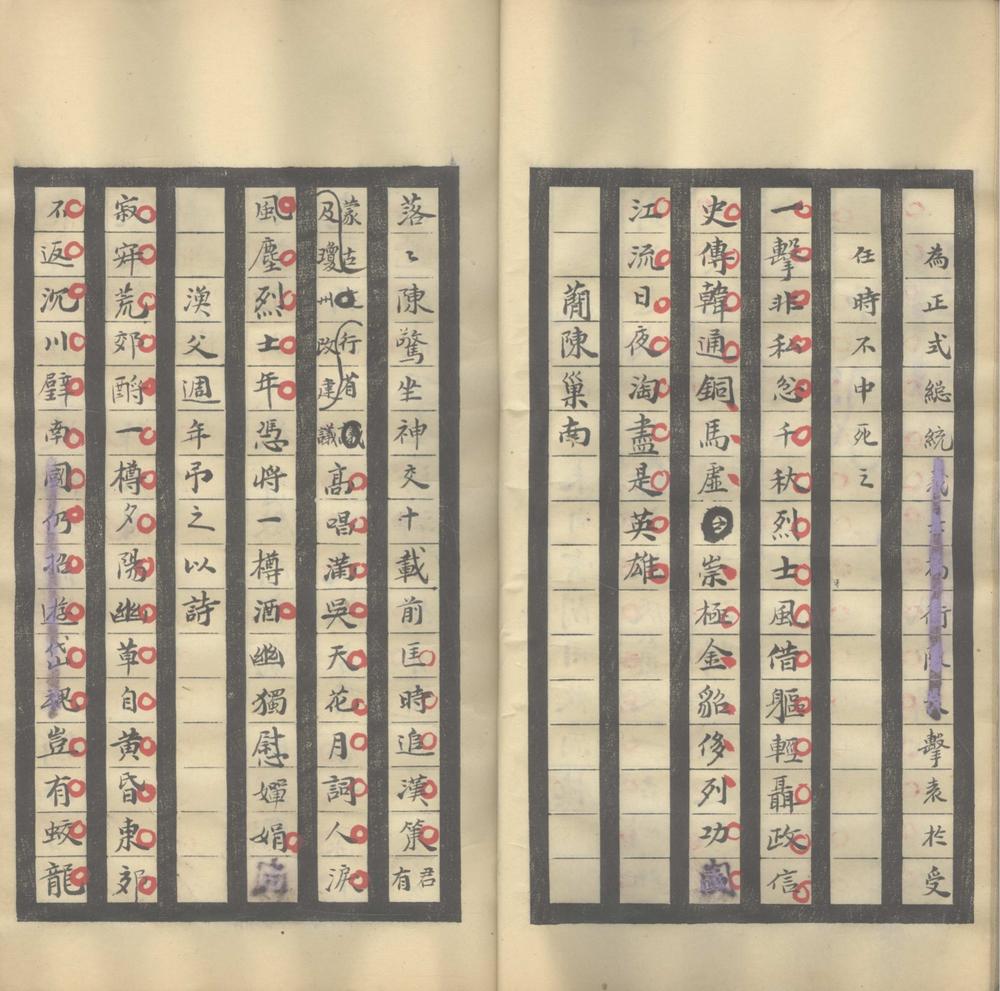 為正式総統行擊袁於受
任時不中死之
一擊非私忿千秋烈士風借軀輕聶政信
史傳韓通銅馬虛崇極金貂侈列功
江流日夜淘盡是英雄
蘭陳巢南
落〻陳驚坐神交十載前匡時追漢策君有
蒙古行省
及瓊州改建議高唱滿吳天花月詞人淚
風塵烈士年憑將一樽酒幽獨慰嬋娟
漁父週年弔之以詩
寂寞荒郊酹一樽夕陽幽草自黃昏東郊
不返沉川璧南國仍招遊岱魂豈有蛟龍